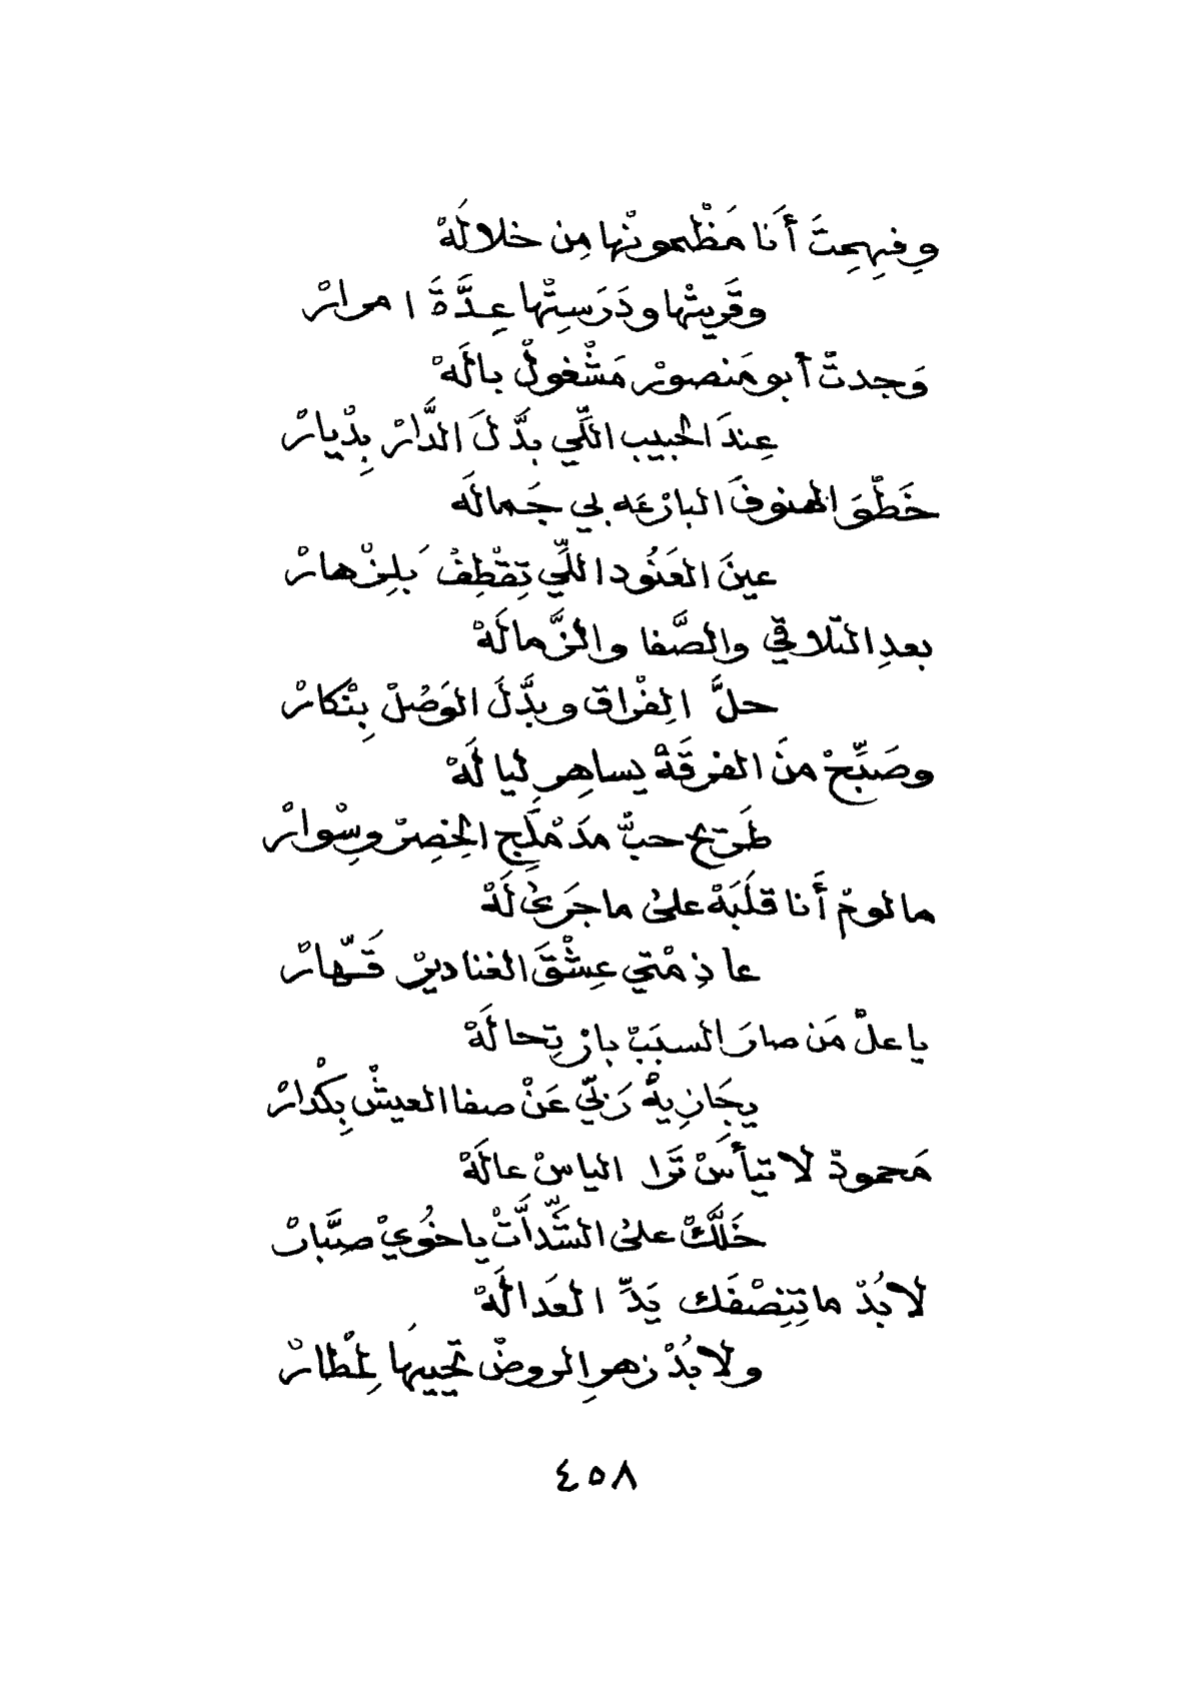 وِفهِمِتَ أَنا مَظْمونْها مِن خلالَهْ
وقَريتْها ودَرَسِتْها عِدَّةَ امرارْ
وَجدتْ أبو مَنصورْ مَشْغولْ بالَهْ
عِندَ الحبيب اللّي بدَّلَ الدَّارْ بِدْيارْ
خَطْوَ الهنوفَ البارْعَه بي جَمالَه
عينَ العَنُود اللّي تِقْطِفْ بَلِزْهارْ
بعدِ التّلاقي والصَّفا والزَّمالَهْ
حلَّ الِفْراق وبدَّلَ الوَصْلْ بِنْكارْ
وصَبِّحْ منَ الفرقَهْ يساهِرِ ليالَهْ
طَريح حبّْ مدَمْلَجِ الخِصِرْ وِسْوارْ
مالومْ أَنا قلَبَهْ على ماجَرى لَهْ
عاذِمْتي عِشْقَ الغنادير قَهّارْ
ياعلّ مَن صارَ السبَبْ بارْتِحالَهْ
يجَازِيهْ رَبّي عَنْ صفا العيشْ بِكْدارْ
مَحمودْ لا تيأَسْ تَرا الياسْ عالَهْ
خَلَّكْ على الشِّدّاتْ ياخُويْ صبَّارْ
لابُدْ ماتِنِصْفَك يَدِّ العَدالَهْ
ولابُدْ زهرِ الروضْ تحييهَا لِمْطارْ
٤٥٨